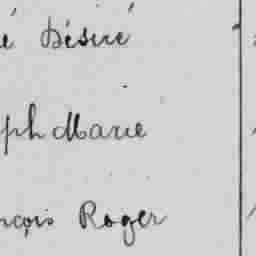 é Désiré
ph Marie
nçois Roger